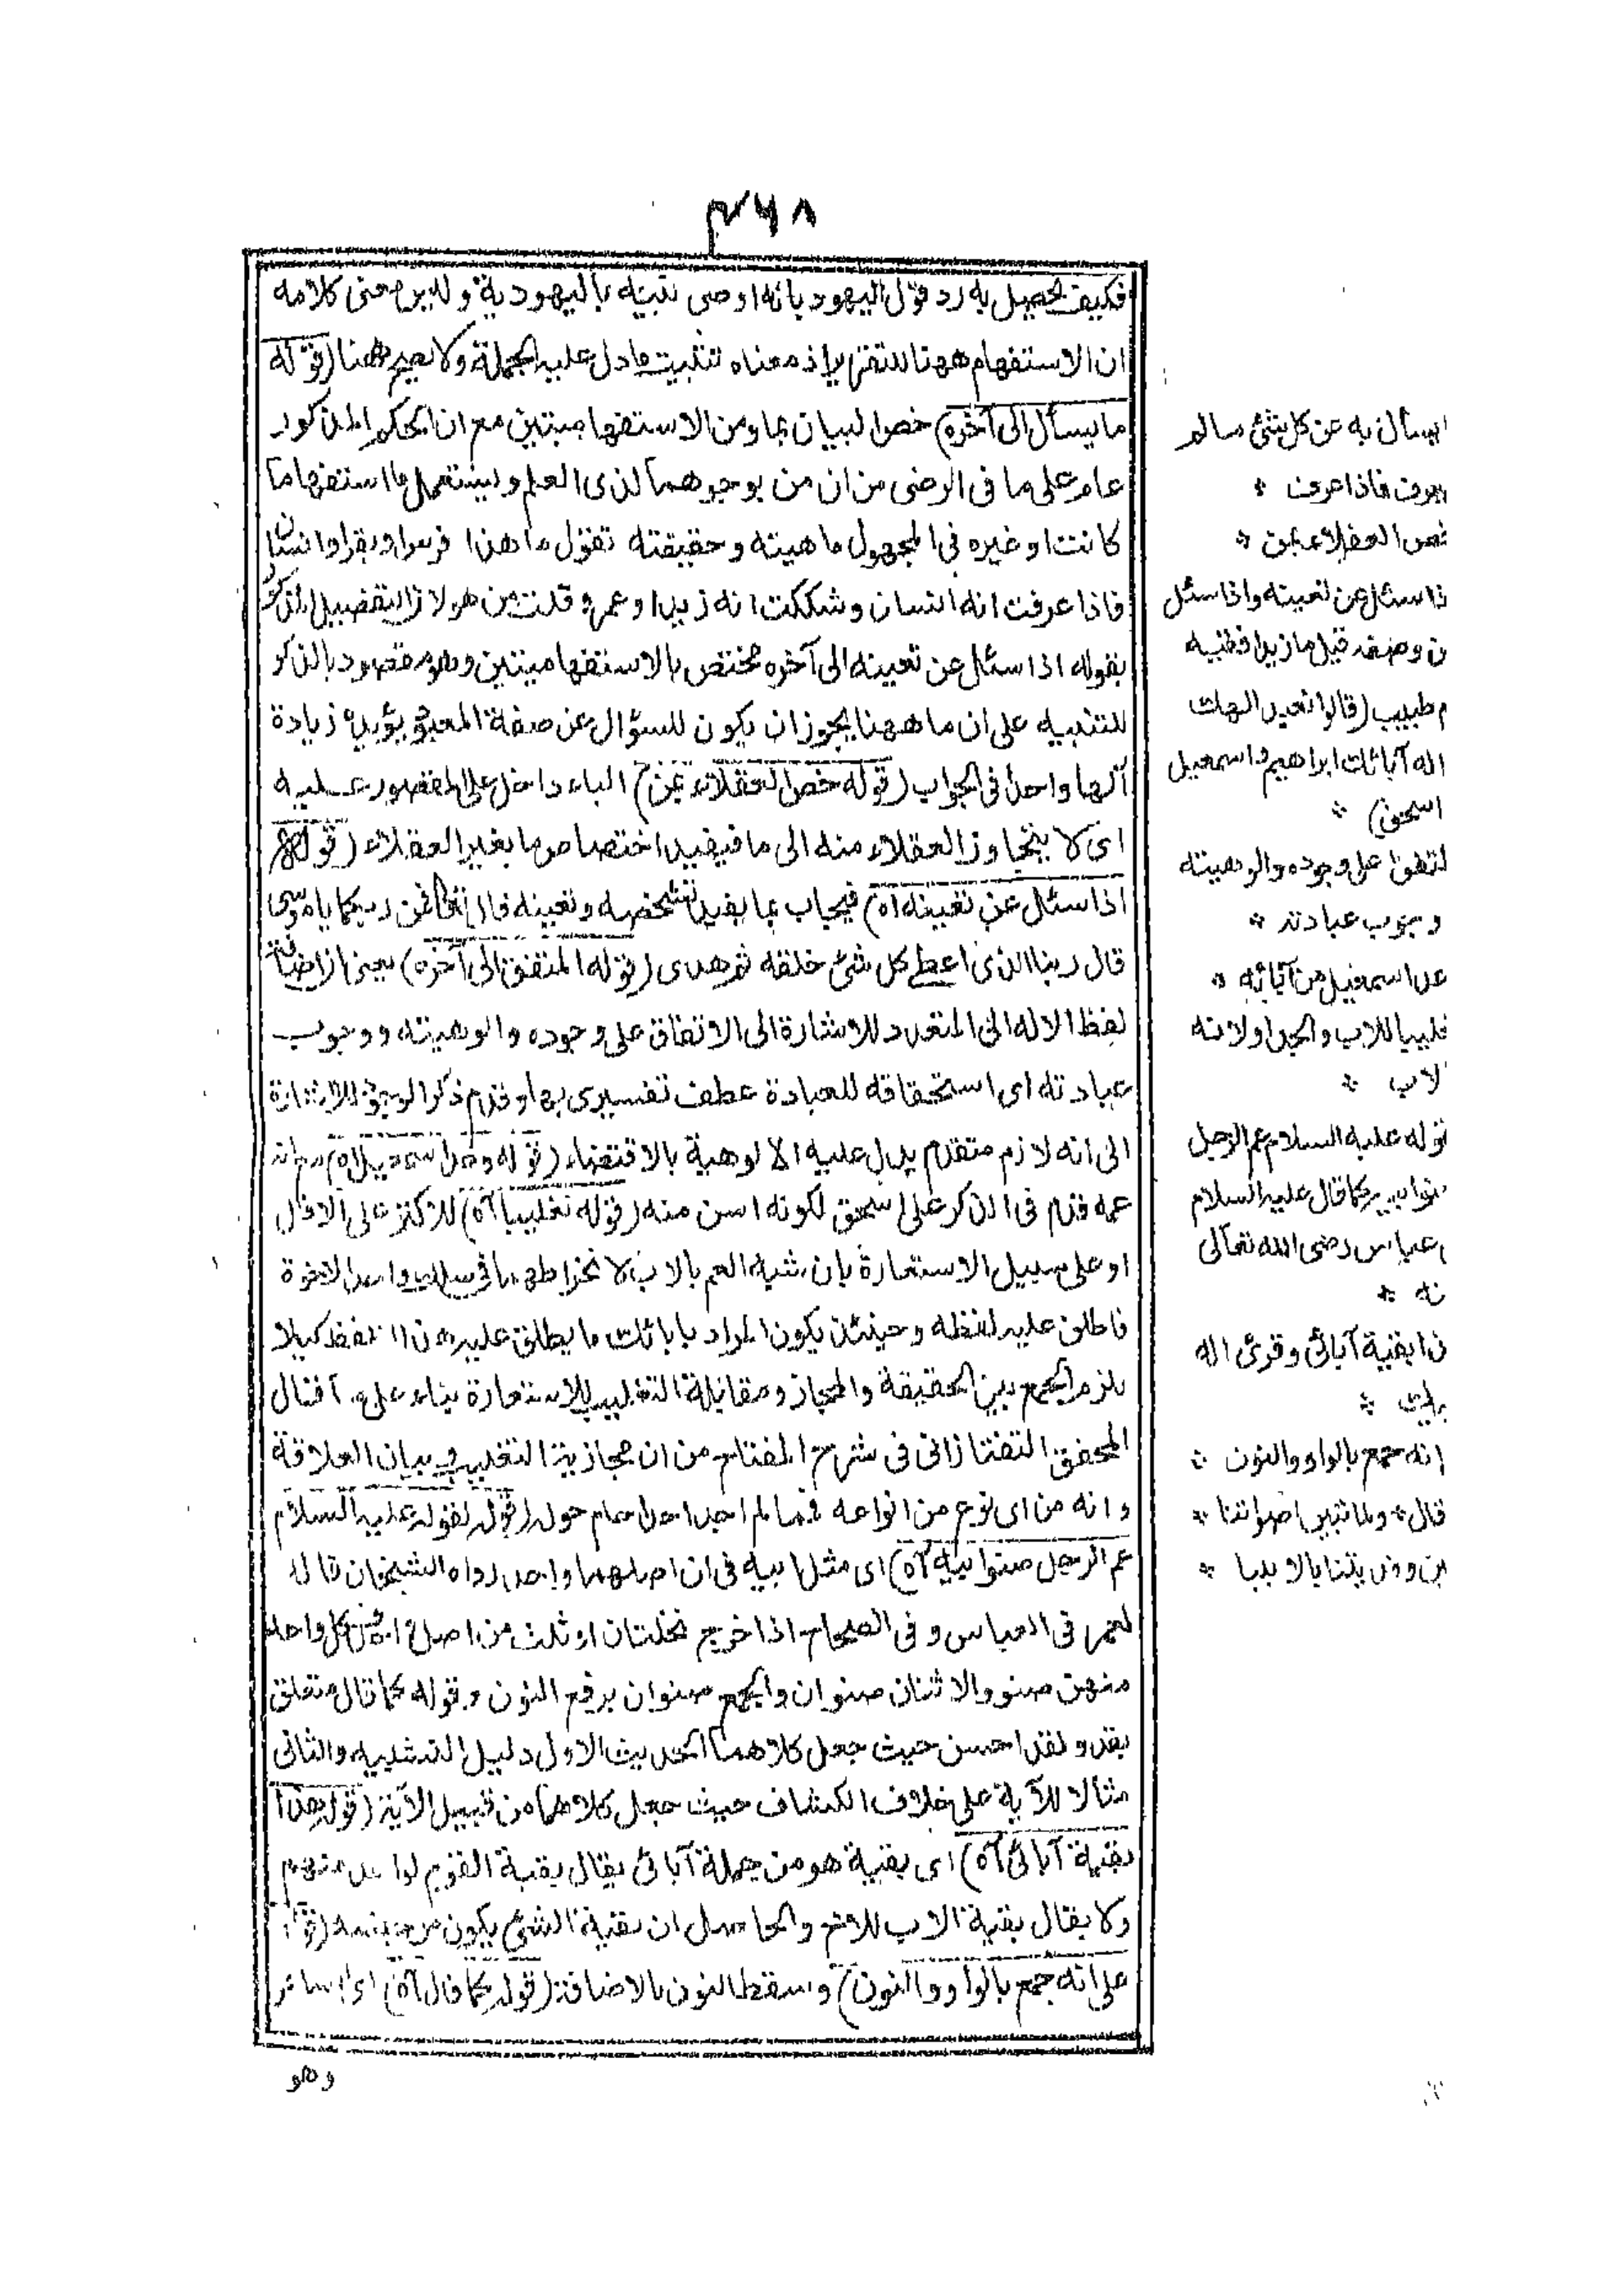 ٣٦٨
فكيف يحصل به رد قول اليهود بانه اوصى بنيه باليهودية وليس معنى كلامه
ان الاستفهام ههنا للتقرير اذ معناه تثبيت ما دل عليه الجملة ولا يصح ههنا (قوله
ما يسأل الى آخره) خص البيان بما ومن الاستفهاميتين مع ان الحكم المذكور
عام على ما فى الرضى من ان من بوجوهها لذى العلم ويستعمل ما استفهاما
كانت او غيره فى المجهول ماهيته وحقيقته تقول ما هذا فرس او بقر او انسان
فاذا عرفت انه انسان وشككت انه زيد او عمرو قلت من هو لان التفصيل المذكور
بقوله اذا سئل عن تعيينه الى آخره مختص بالاستفهاميتين وهو مقصود بالذكر
للتنبيه على ان ما ههنا يجوز ان يكون للسؤال عن صفة المعبود يؤيده زيادة
آلها واحدا فى الجواب (قوله خص العقلاء بمن) الباء داخل على المقصور عليه
اى لا يتجاوز العقلاء منه الى ما فيفيد اختصاص ما بغير العقلاء (قوله
اذا سئل عن تعيينه اه) فيجاب بما يفيد تشخصه وتعينه قال تعالى فمن ربكما يا موسى
قال ربنا الذى اعطى كل شئ خلقه ثم هدى (قوله المتفق الى آخره) يعنى ان اضافة
لفظ الاله الى المتعدد للاشارة الى الاتفاق على وجوده والوهيته ووجوب
عبادته اى استحقاقه للعبادة عطف تفسيرى بها وقدم ذكر الوجود للاشارة
الى انه لازم متقدم يدل عليه الالوهية بالاقتضاء (قوله وعد اسمعيل اه) مع انه
عمه قدم فى الذكر على اسحق لكونه اسن منه (قوله تغليبا اه) للاكثر على الاقل
او على سبيل الاستعارة بان شبه العم بالاب لانخراطهما فى سلك واحد الاخوة
فاطلق عليه لفظه وحينئذ يكون المراد بابائك ما يطلق عليه هذا اللفظ كيلا
يلزم الجمع بين الحقيقة والمجاز ومقابلة التغليب للاستعارة بناء على ما قال
المحقق التفتازانى فى شرح المفتاح من ان مجازية التغليب وبيان العلاقة
وانه من اى نوع من انواعه فمما لم اجد احدا حام حوله (قوله لقوله عليه السلام
عم الرجل صنو ابيه آه) اى مثل ابيه فى ان اصلهما واحد رواه الشيخان قاله
لعمر فى العباس وفى الصحاح اذا خرج نخلتان او ثلث من اصل واحد فكل واحد
منهن صنو والاثنان صنوان والجمع صنوان برفع النون وقوله كما قال متعلق
بقد ولقد احسن حيث جعل كلاهما الحديث الاول دليل التشبيه والثانى
مثالا للآية على خلاف الكشاف حيث جعل كلاهما من قبيل الآية (قوله هذا
بقية آبائى آه) اى بقية هو من جملة آبائى يقال بقية القوم لواحد منهم
ولا يقال بقية الاب للاخ والحاصل ان بقية الشئ يكون من جنسه (قوله
على انه جمع بالواو والنون) وسقط النون بالاضافة (قوله كما قال آه) اى الشاعر
وهو
ايسأل به عن كل شئ ما لم
يعرف فاذا عرف *
خص العقلاء بمن *
ذا سئل عن تعيينه واذا سئل
ن وصفه قيل ما زيد افقيه
م طبيب (قالوا نعبد الهك
اله آبائك ابراهيم واسمعيل
اسحق) *
لتفق على وجوده والوهيته
وجوب عبادته *
عد اسمعيل من آبائه *
غليبا للاب والجد او لانه
لاب *
قوله عليه السلام عم الرجل
صنو ابيه كما قال عليه السلام
عباس رضى الله تعالى
نه *
ذا بقية آبائى وقرئ اله
بيك *
انه جمع بالواو والنون *
قال * ولما تبين اصواتنا *
ين وفديننا بالابينا *